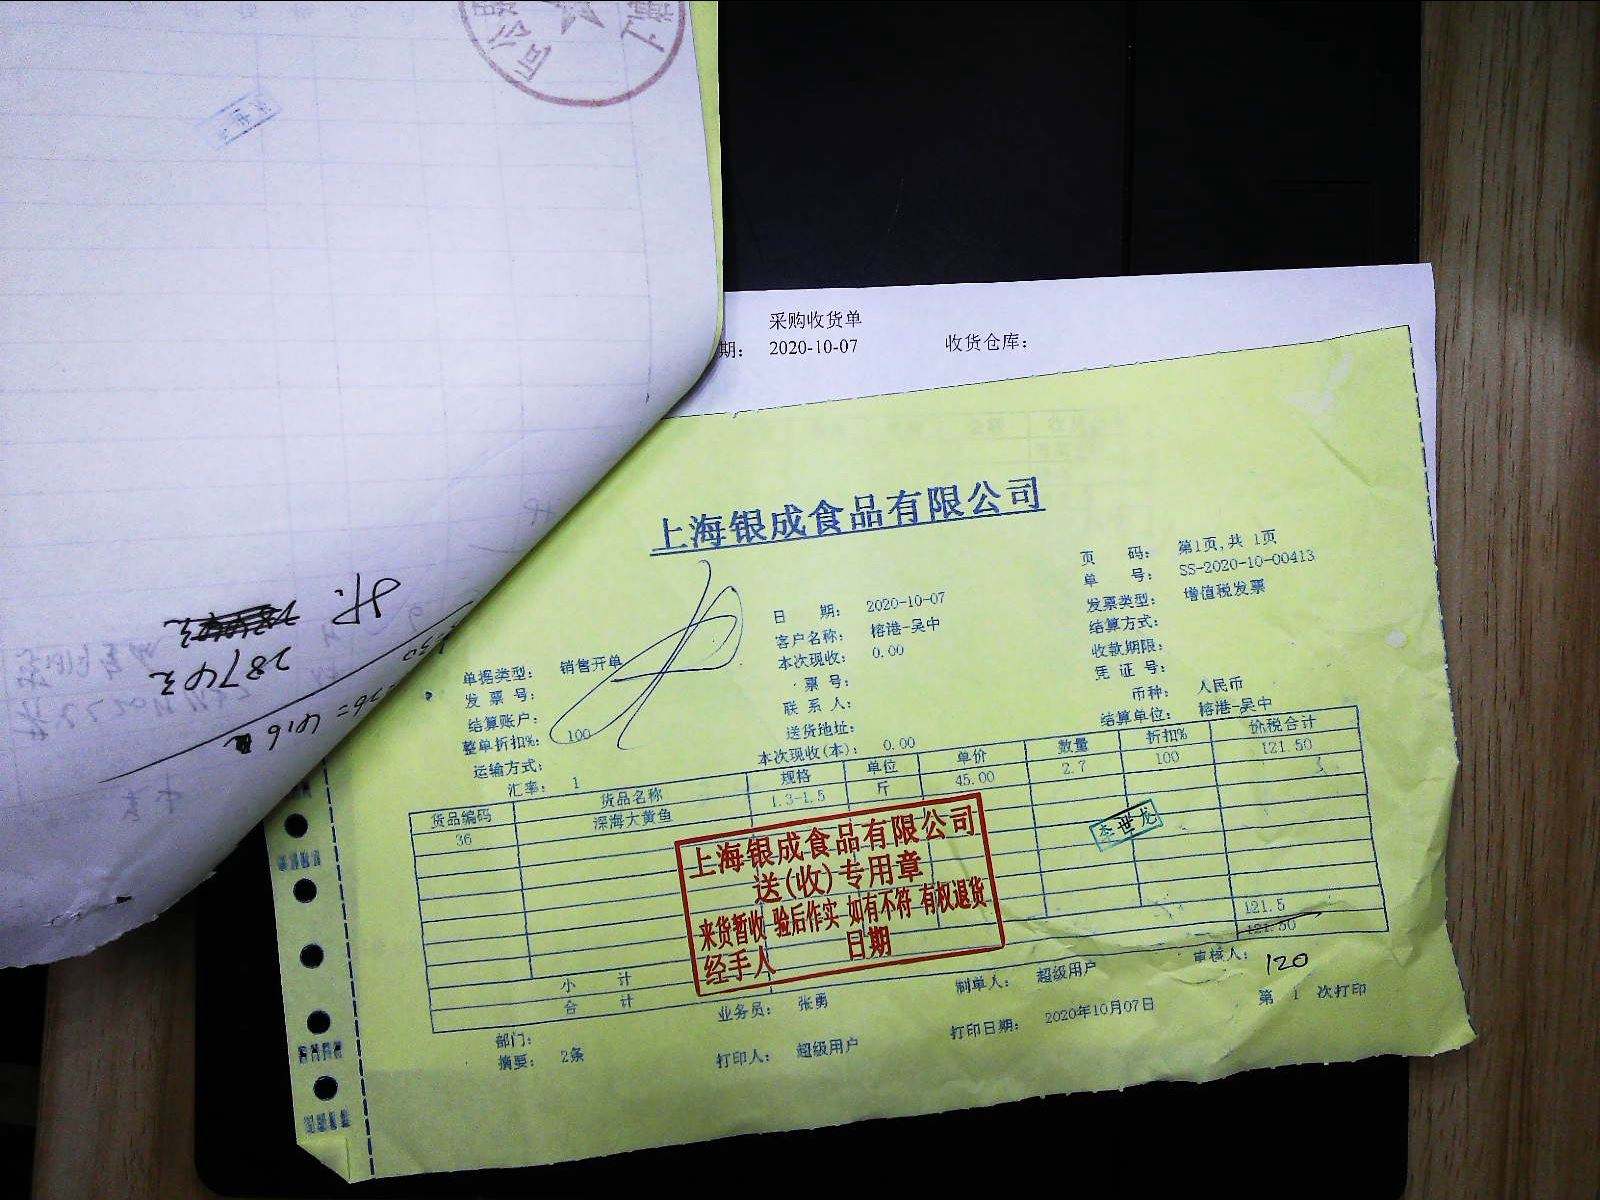 采购收货单
期： 2020-10-07 收货仓库：
上海银成食品有限公司
页 码： 第1页,共 1页
单 号： SS-2020-10-00413
日 期： 2020-10-07 发票类型： 增值税发票
客户名称： 榕港-吴中 结算方式：
单据类型： 销售开单 本次现收： 0.00 收款期限：
发 票 号： 票 号： 凭 证 号：
结算账户： 联 系 人： 币种： 人民币
整单折扣%： 100 送货地址： 结算单位： 榕港-吴中
运输方式： 本次现收(本)： 0.00
汇率： 1
货品编码 货品名称 规格 单位 单价 数量 折扣% 价税合计
36 深海大黄鱼 1.3-1.5 斤 45.00 2.7 100 121.50
上海银成食品有限公司
送(收)专用章
来货暂收 验后作实 如有不符 有权退货
经手人 日期
小 计 121.5
合 计 121.50
120
部门： 业务员： 张勇 制单人： 超级用户 审核人：
摘要： 2条 打印人： 超级用户 打印日期： 2020年10月07日 第 1 次打印